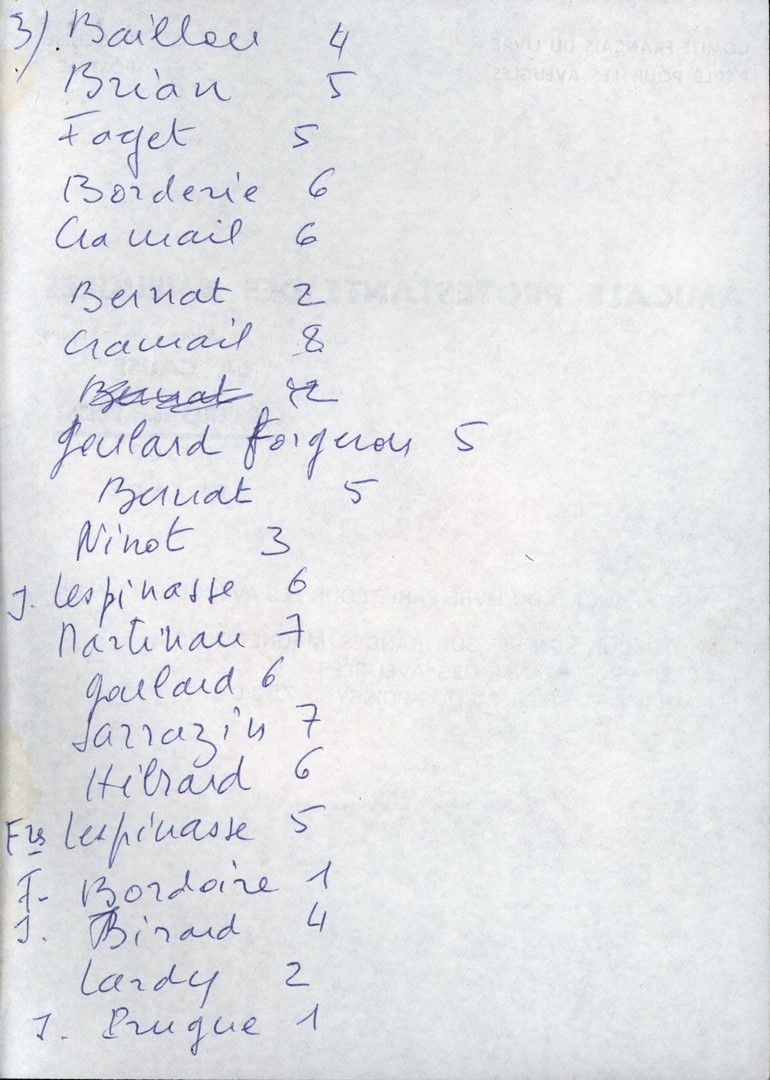 3). Baillou 4
Brian 5
Faget 5
Borderie 6
Cramail 6
Bernat 2
Cramail 8
Bernat 2
Goulard forgeron 5
Bernat 5
Ninot 3
J. Lespinasse 6
Martinau 7
Goulard 6
Sarrazin 7
Hébrard 6
Frs Lespinasse 5
F. Bordoire 1
J. Birard 4
Lardy 2
J. 1